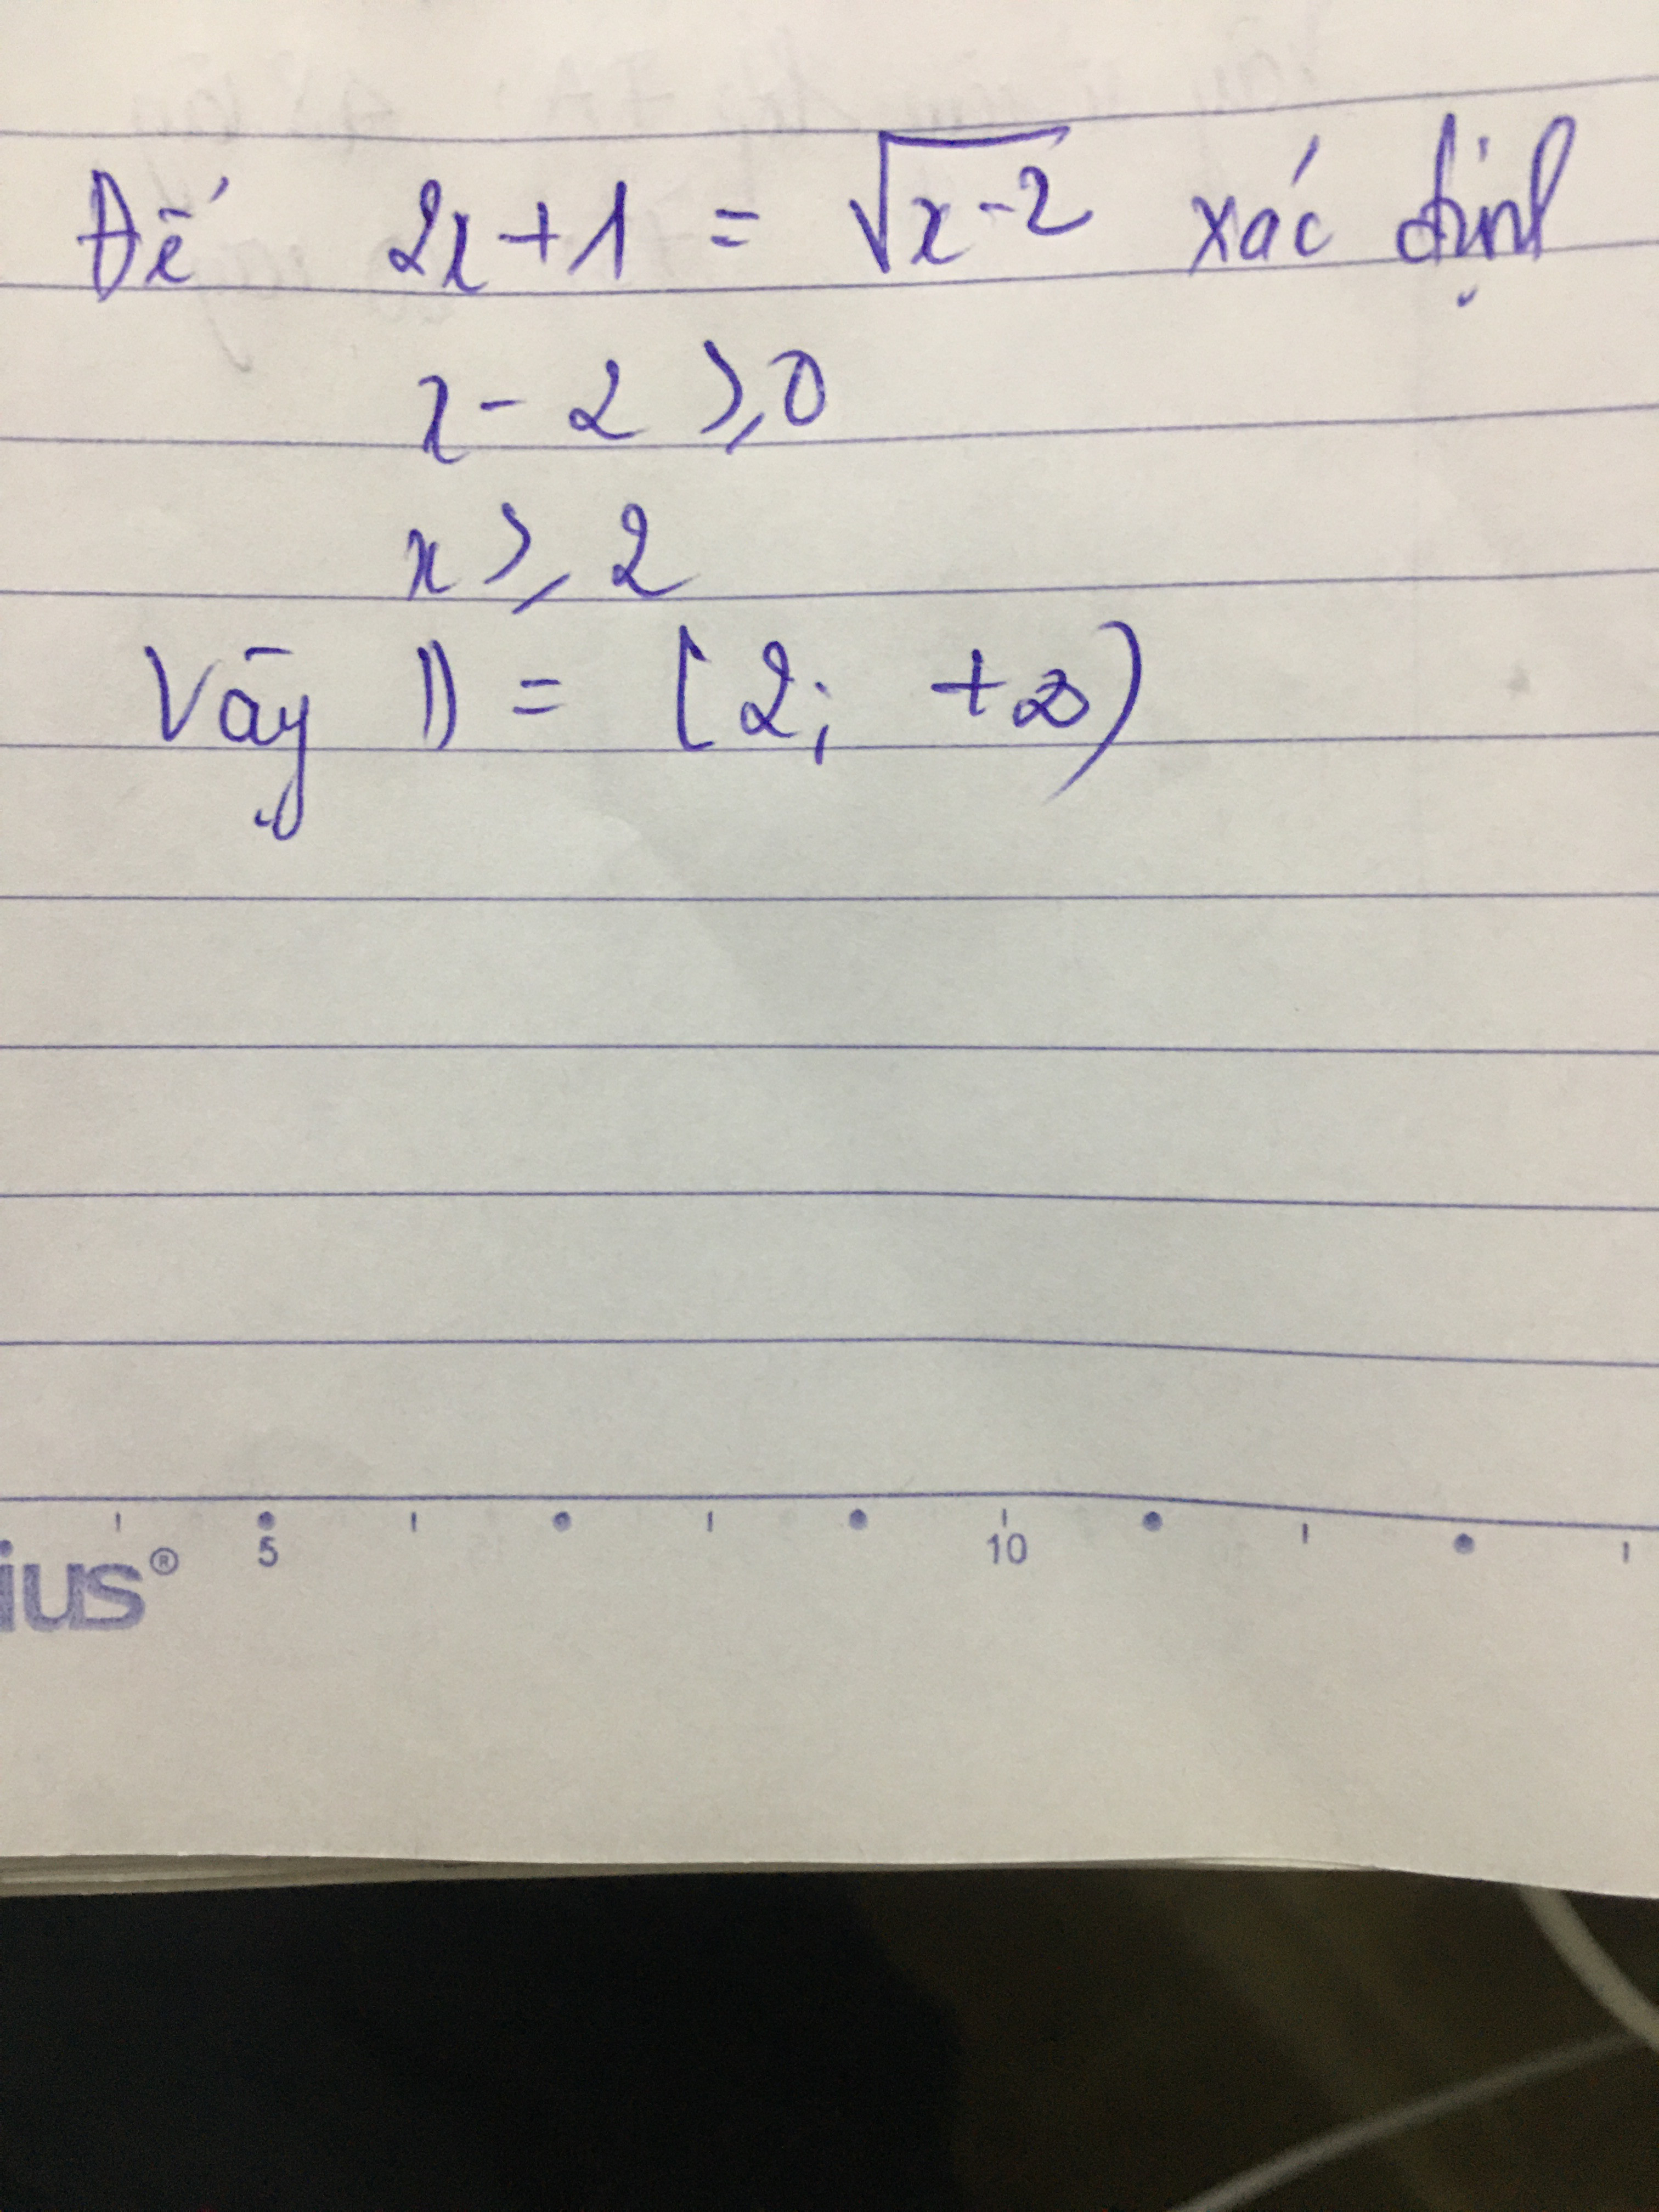 Để 2x+1 = √x-2 xác định
x - 2 ≥ 0
x ≥ 2
Vậy D = [2; +∞)
5 10
ius®